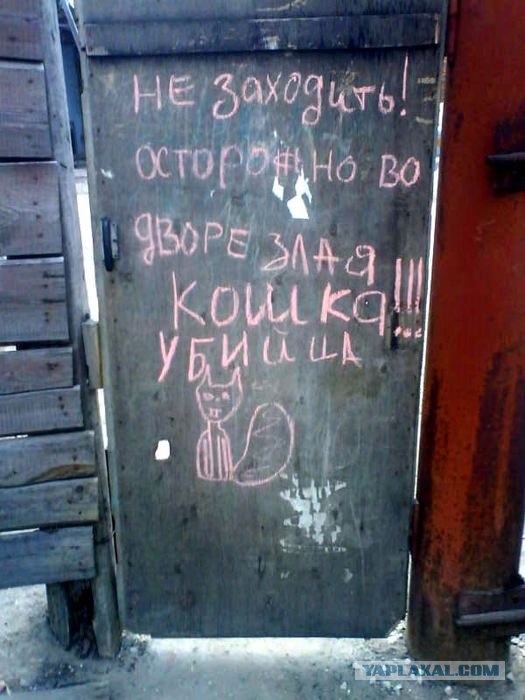 НЕ ЗАХОДИТЬ!
ОСТОРОЖНО ВО
ДВОРЕ ЗЛАЯ
КОШКА!!!
УБИЙЦА
YAPLAKAL.COM